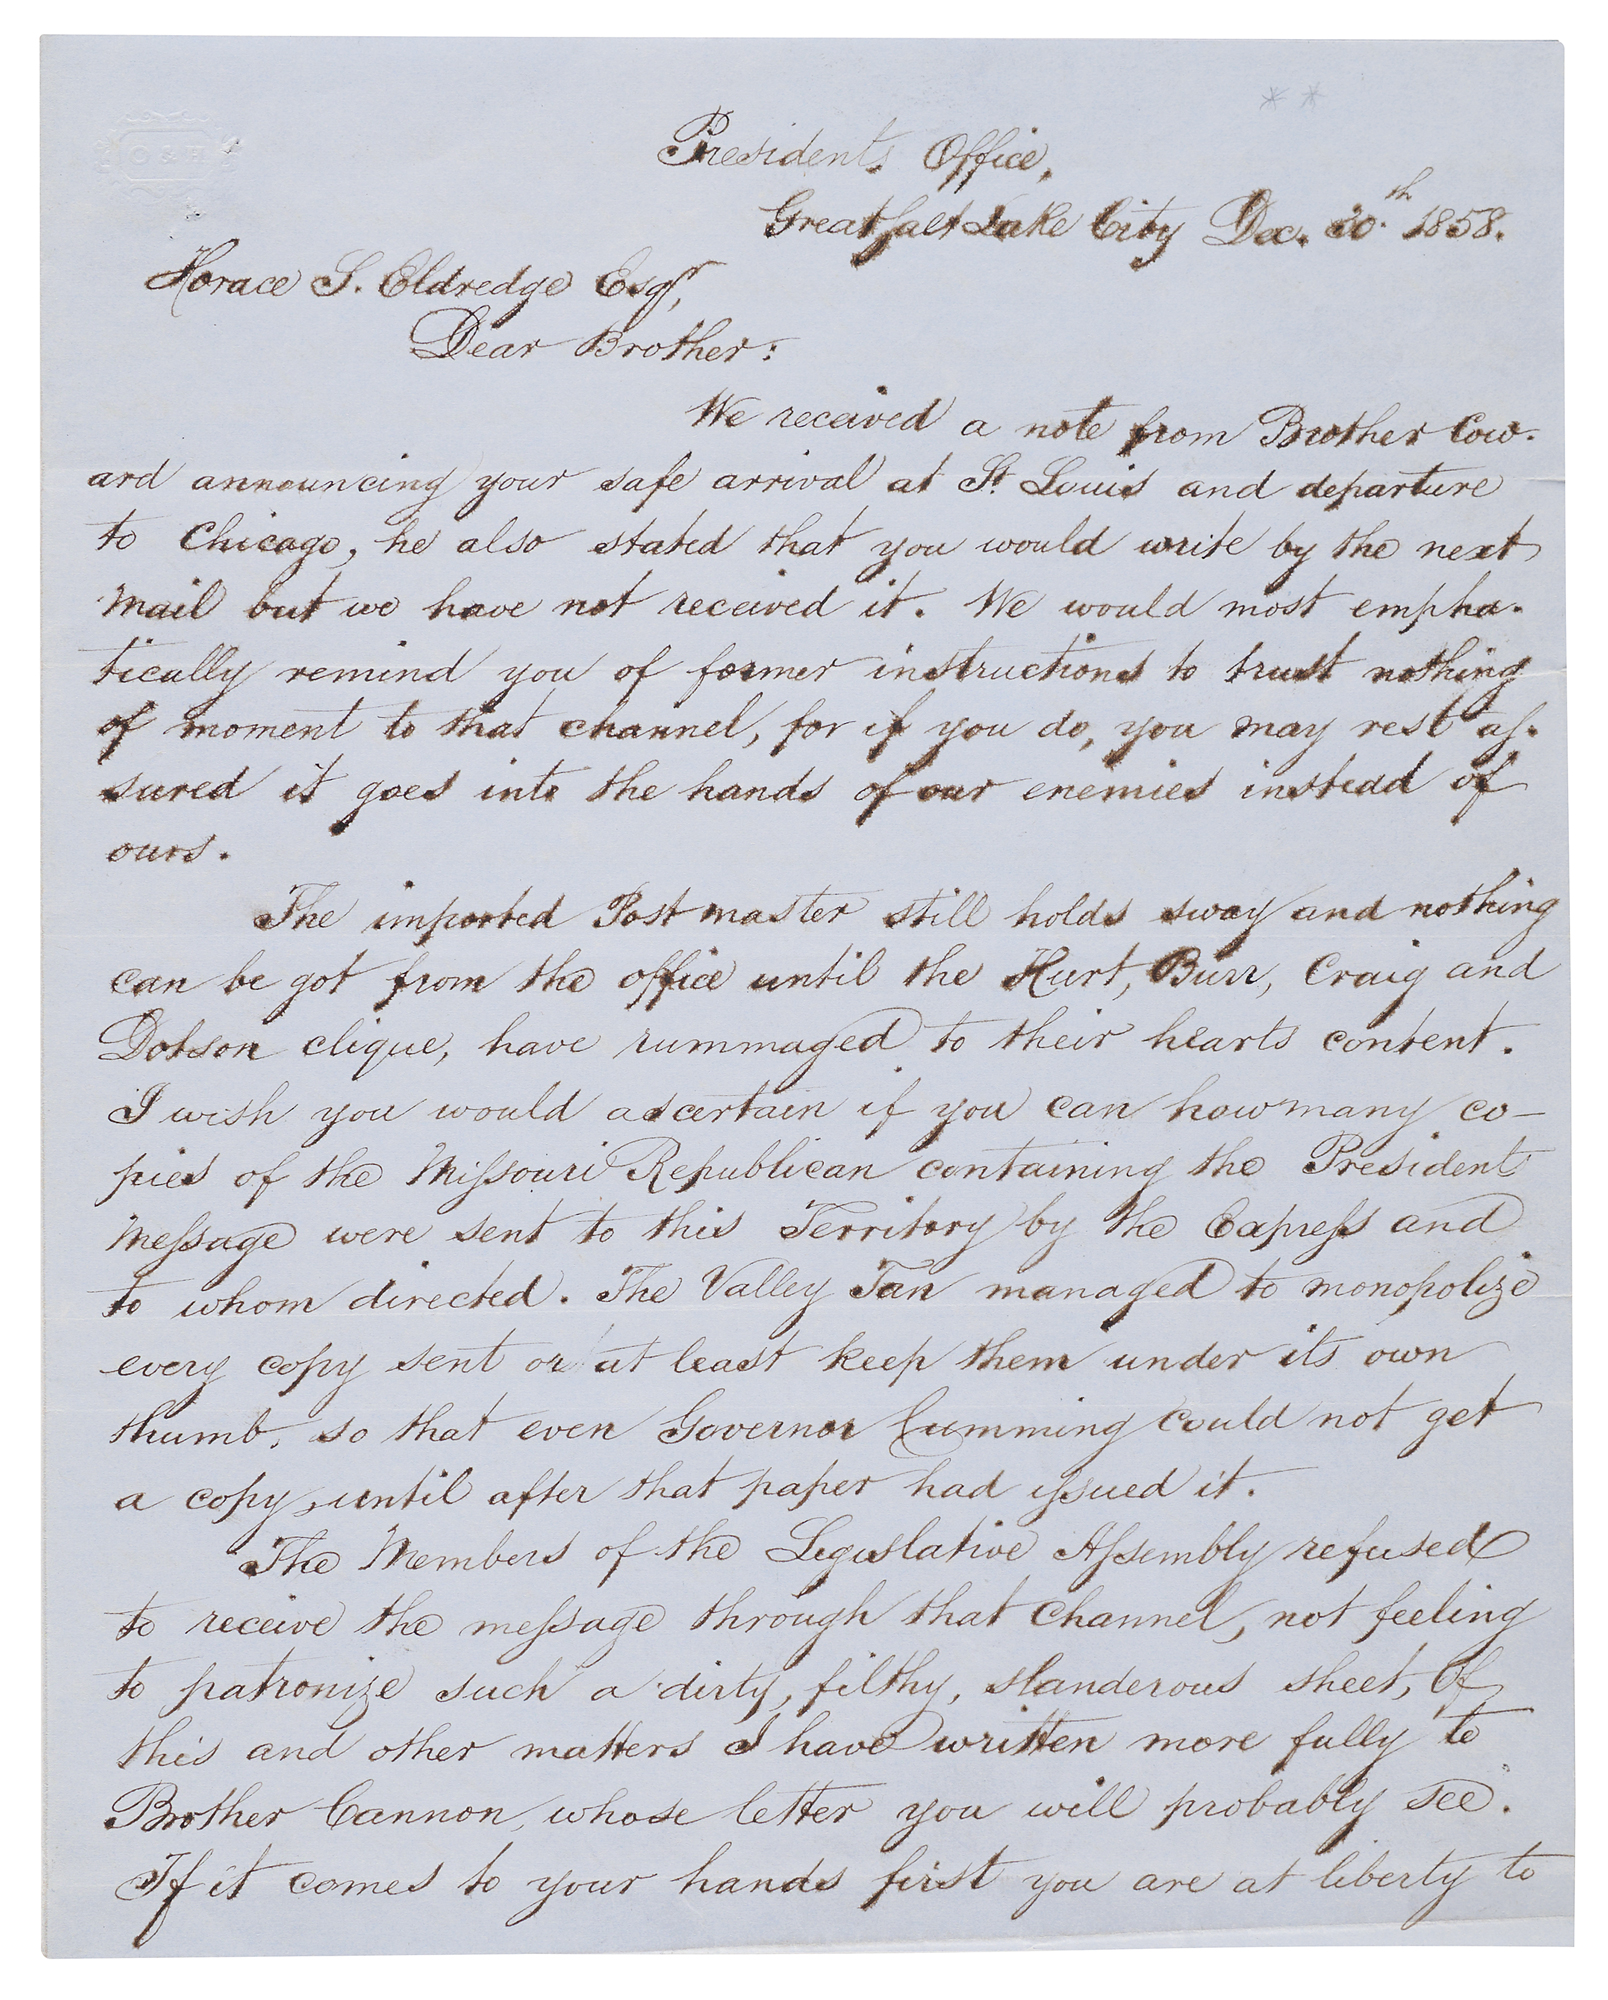 O & H
Presidents Office,
Great Salt Lake City Dec. 30.th 1858.
Horace S. Eldredge Esqr,
Dear Brother:
We received a note from Brother Cow-
ard announcing your safe arrival at St. Louis and departure
to Chicago, he also stated that you would write by the next
Mail but we have not received it. We would most empha-
tically remind you of former instructions to trust nothing
of moment to that channel, for if you do, you may rest as-
sured it goes into the hands of our enemies instead of
ours.
The imported Postmaster still holds sway and nothing
can be got from the office until the Hurt, Burr, Craig and
Dotson clique, have rummaged to their hearts content.
I wish you would ascertain if you can how many co-
pies of the Missouri Republican containing the President
Message were sent to this Territory by the Express and
to whom directed. The Valley Tan managed to monopolize
every copy sent or at least keep them under its own
thumb, so that even Governor Cumming could not get
a copy, until after that paper had issued it.
The Members of the Legislative Assembly refused
to receive the message through that Channel, not feeling
to patronize such a dirty, filthy, slanderous sheet, Of
this and other matters I have written more fully to
Brother Cannon, whose letter you will probably see.
If it comes to your hands first you are at liberty to